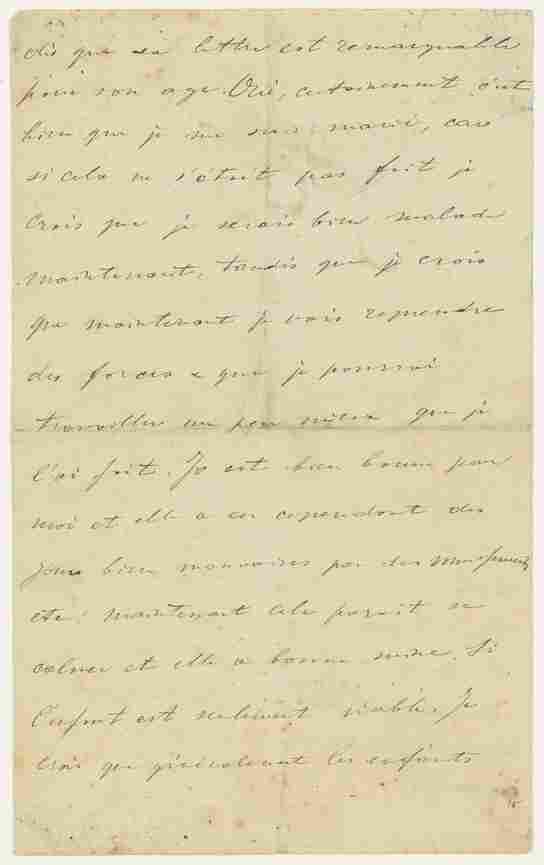 dis que sa lettre est remarquable
pour son age. Oui, certainement c'est
bien que je me sois marié, car
si cela ne s'était pas fait je
crois que je serais bien malade
maintenant, tandis que je crois
que maintenant je vais reprendre
des forces e que je pourrai
travailler un peu mieux que je
l'ai fait. Jo est bien bonne pour
moi et elle a eu cependant des
jours bien mauvaises par des vomissements
etc. maintenant cela parait se
calmer et elle a bonne mine. Si
l'enfant est seulement viable. Je
crois que généralement les enfants